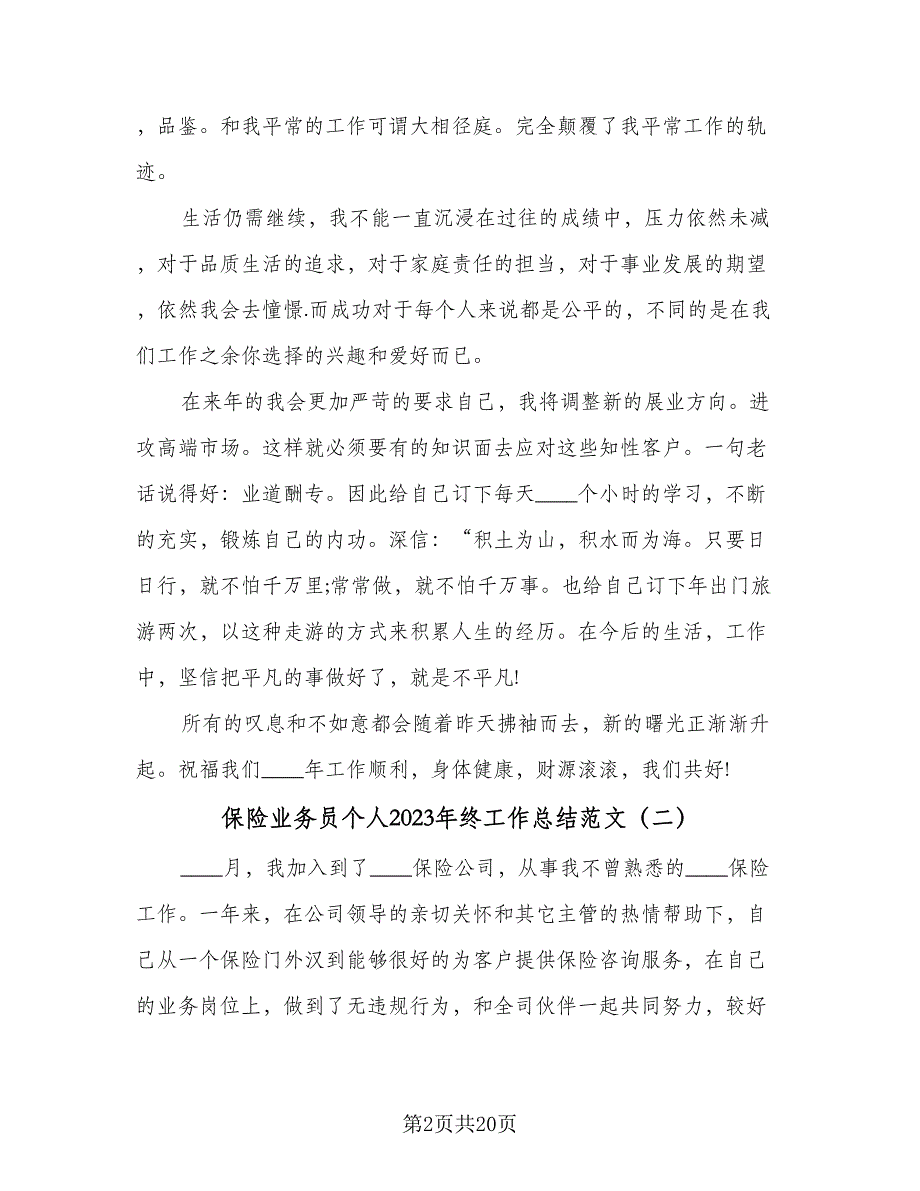 ，品鉴。和我平常的工作可谓大相径庭。完全颠覆了我平常工作的轨
迹。
生活仍需继续，我不能一直沉浸在过往的成绩中，压力依然未减
，对于品质生活的追求，对于家庭责任的担当，对于事业发展的期望
，依然我会去憧憬.而成功对于每个人来说都是公平的，不同的是在我
们工作之余你选择的兴趣和爱好而已。
在来年的我会更加严苛的要求自己，我将调整新的展业方向。进
攻高端市场。这样就必须要有的知识面去应对这些知性客户。一句老
话说得好：业道酬专。因此给自己订下每天____个小时的学习，不断
的充实，锻炼自己的内功。深信：“积土为山，积水而为海。只要日
日行，就不怕千万里;常常做，就不怕千万事。也给自己订下年出门旅
游两次，以这种走游的方式来积累人生的经历。在今后的生活，工作
中，坚信把平凡的事做好了，就是不平凡!
所有的叹息和不如意都会随着昨天拂袖而去，新的曙光正渐渐升
起。祝福我们____年工作顺利，身体健康，财源滚滚，我们共好!
保险业务员个人2023年终工作总结范文（二）
____月，我加入到了____保险公司，从事我不曾熟悉的____保险
工作。一年来，在公司领导的亲切关怀和其它主管的热情帮助下，自
己从一个保险门外汉到能够很好的为客户提供保险咨询服务，在自己
的业务岗位上，做到了无违规行为，和全司伙伴一起共同努力，较好
第2页共20页